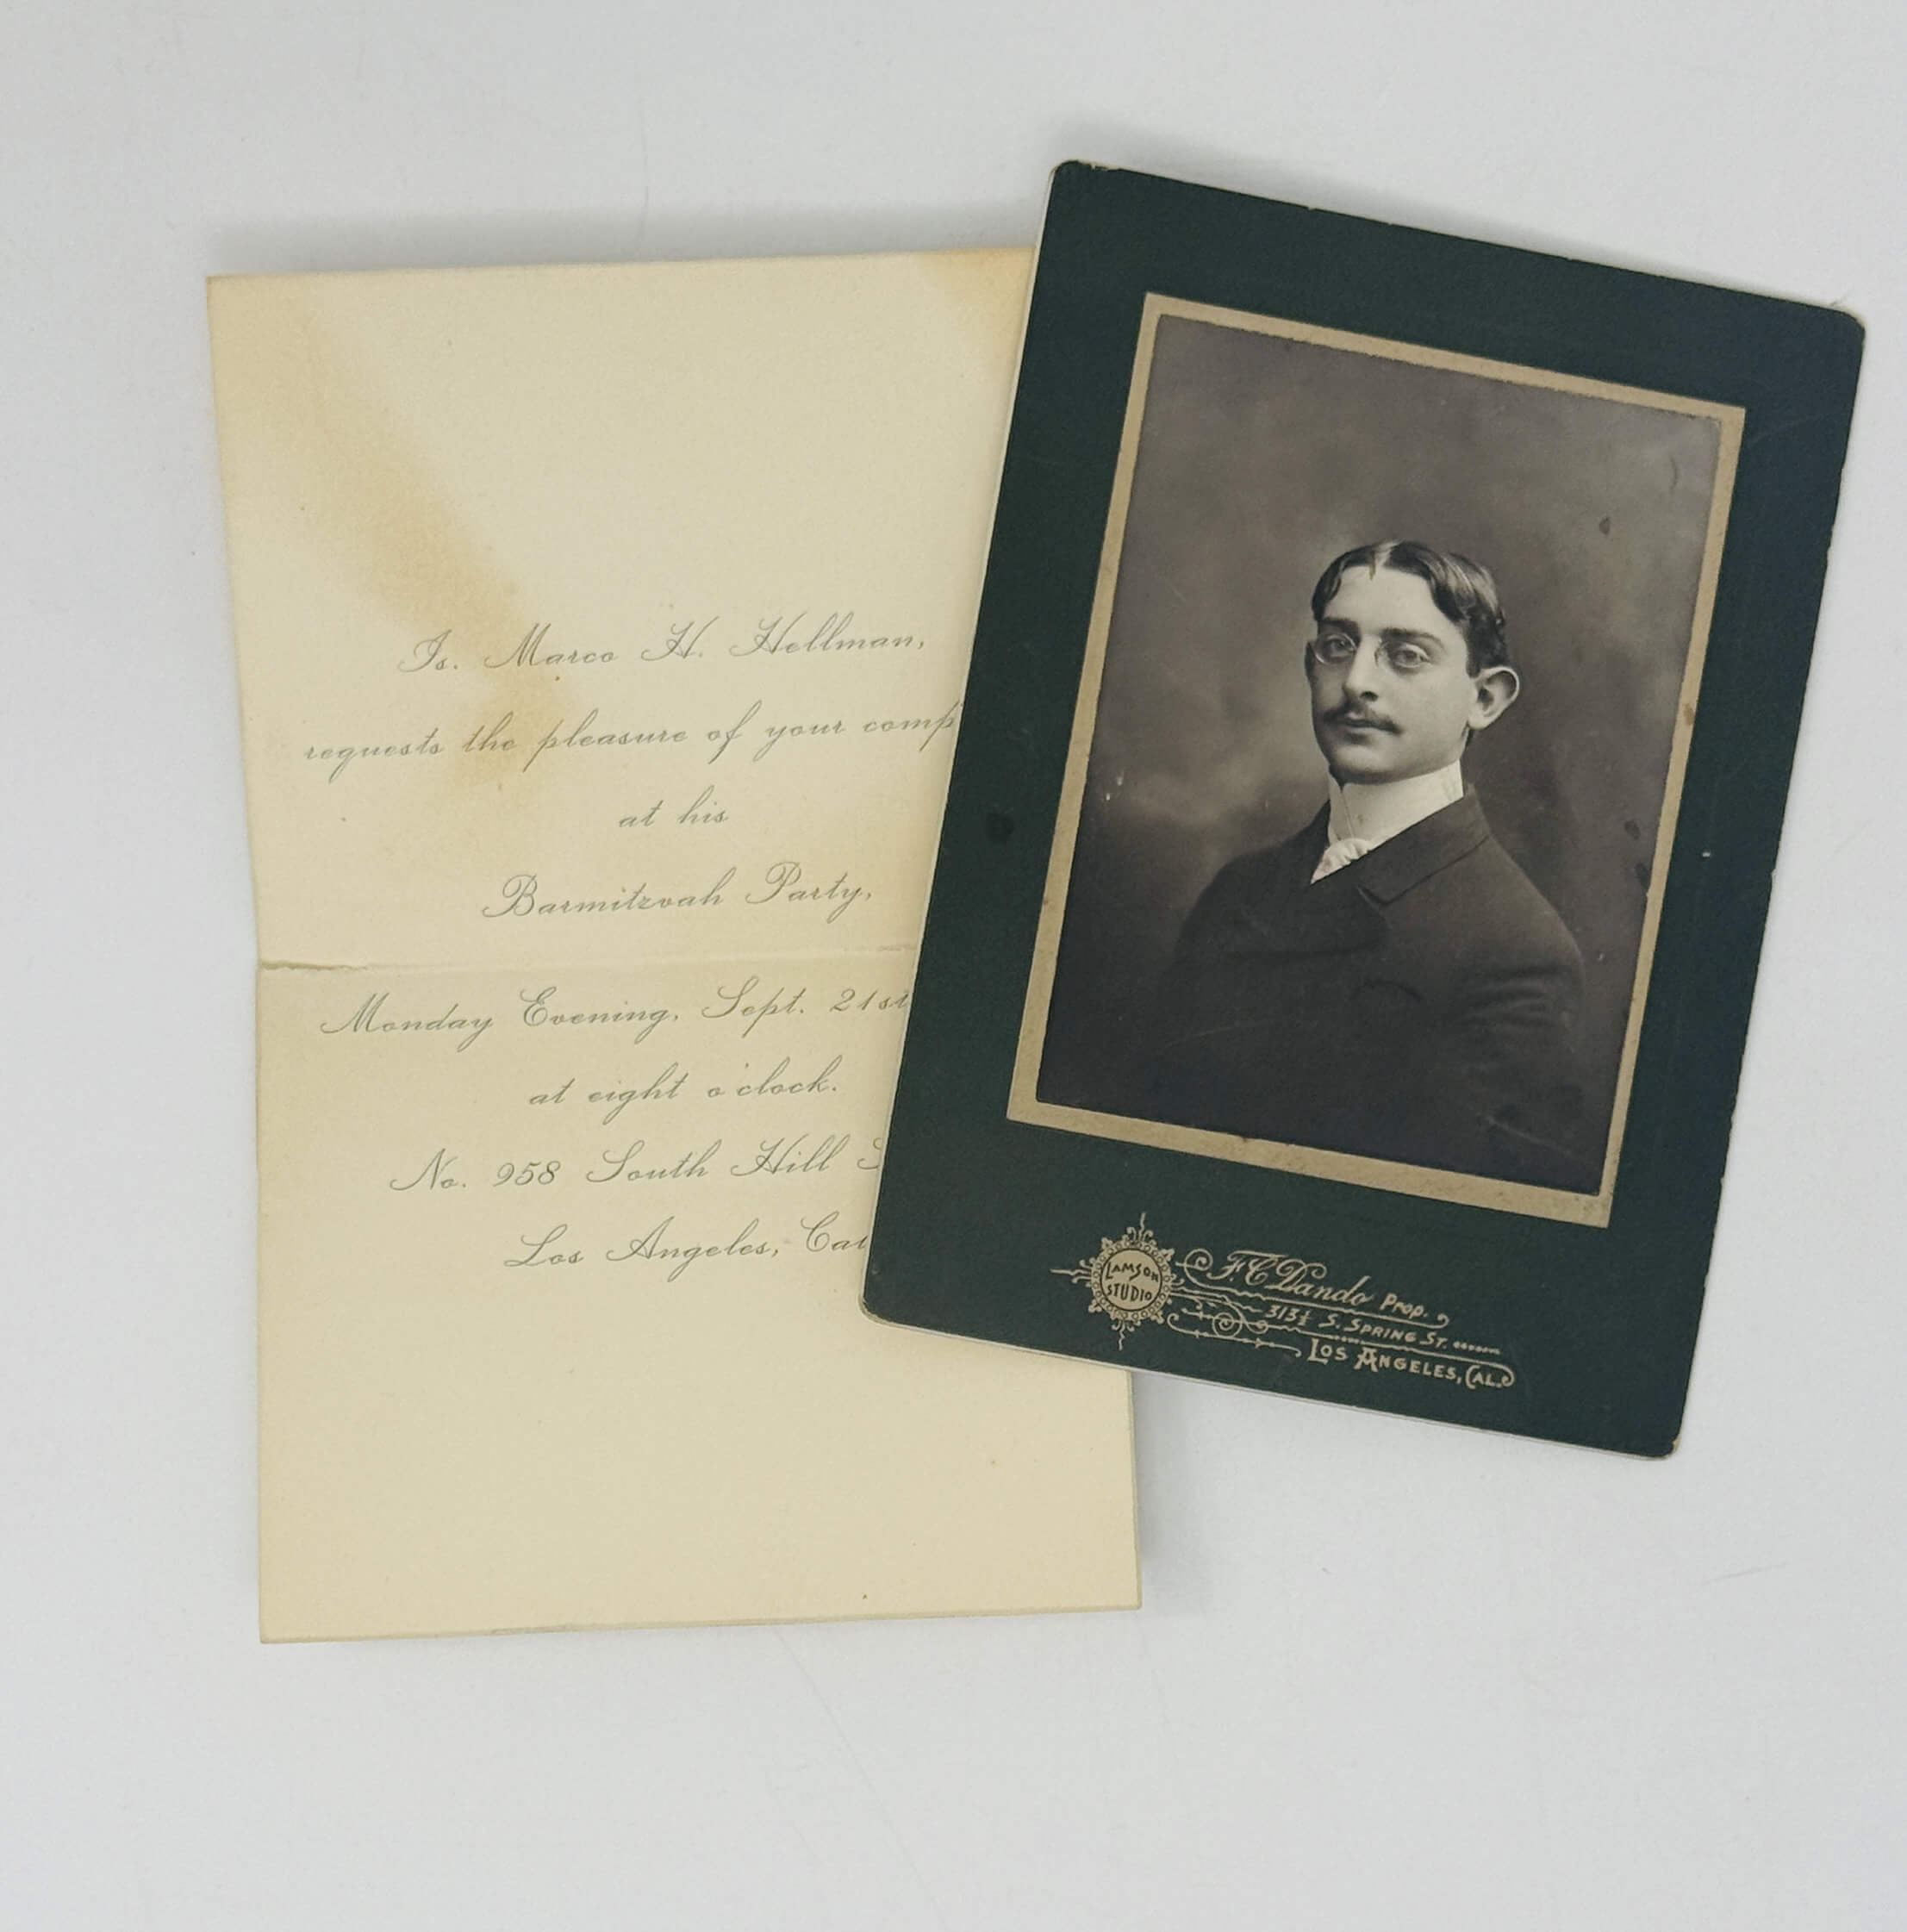 Is. Marco H. Hellman,
requests the pleasure of your comp
at his
Barmitzvah Party,
Monday Evening, Sept. 21st
at eight o'clock.
No. 958 South Hill S
Los Angeles, Cal
LAMSON
STUDIO
F. C. Dando Prop.
313½ S. SPRING ST.
LOS ANGELES, CAL.